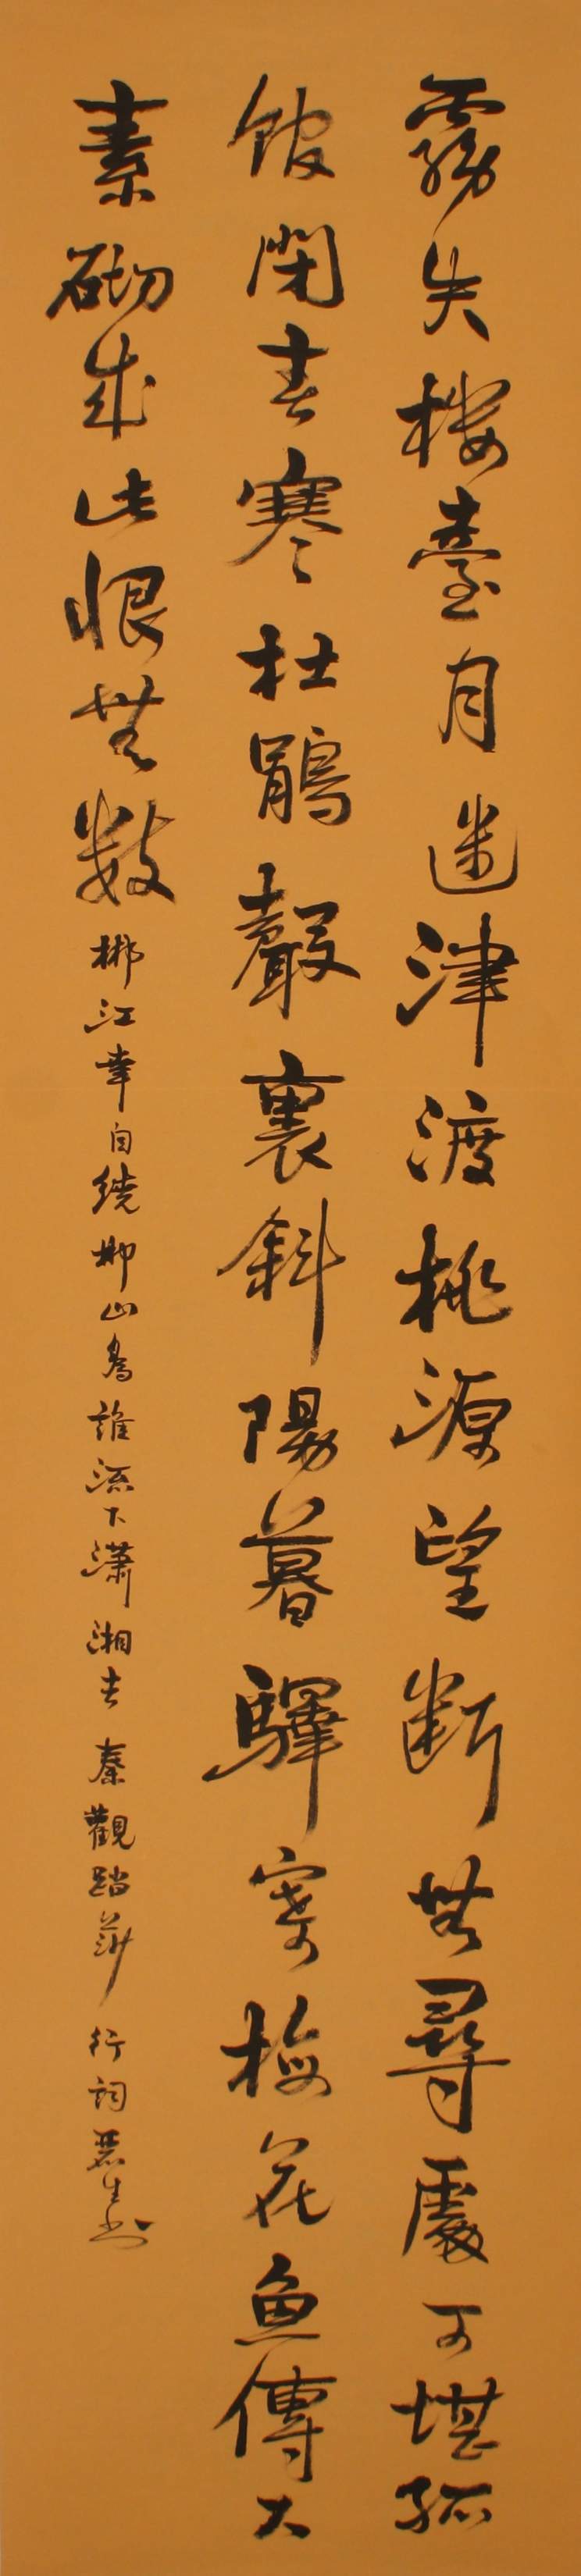 霧失楼臺月迷津渡桃源望断無尋處可堪孤
館閉春寒杜鵑聲裏斜陽暮驛寄梅花魚傳大
素砌成此恨無數郴江幸自绕郴山為誰流下瀟湘去 秦觀踏莎行詞 生书